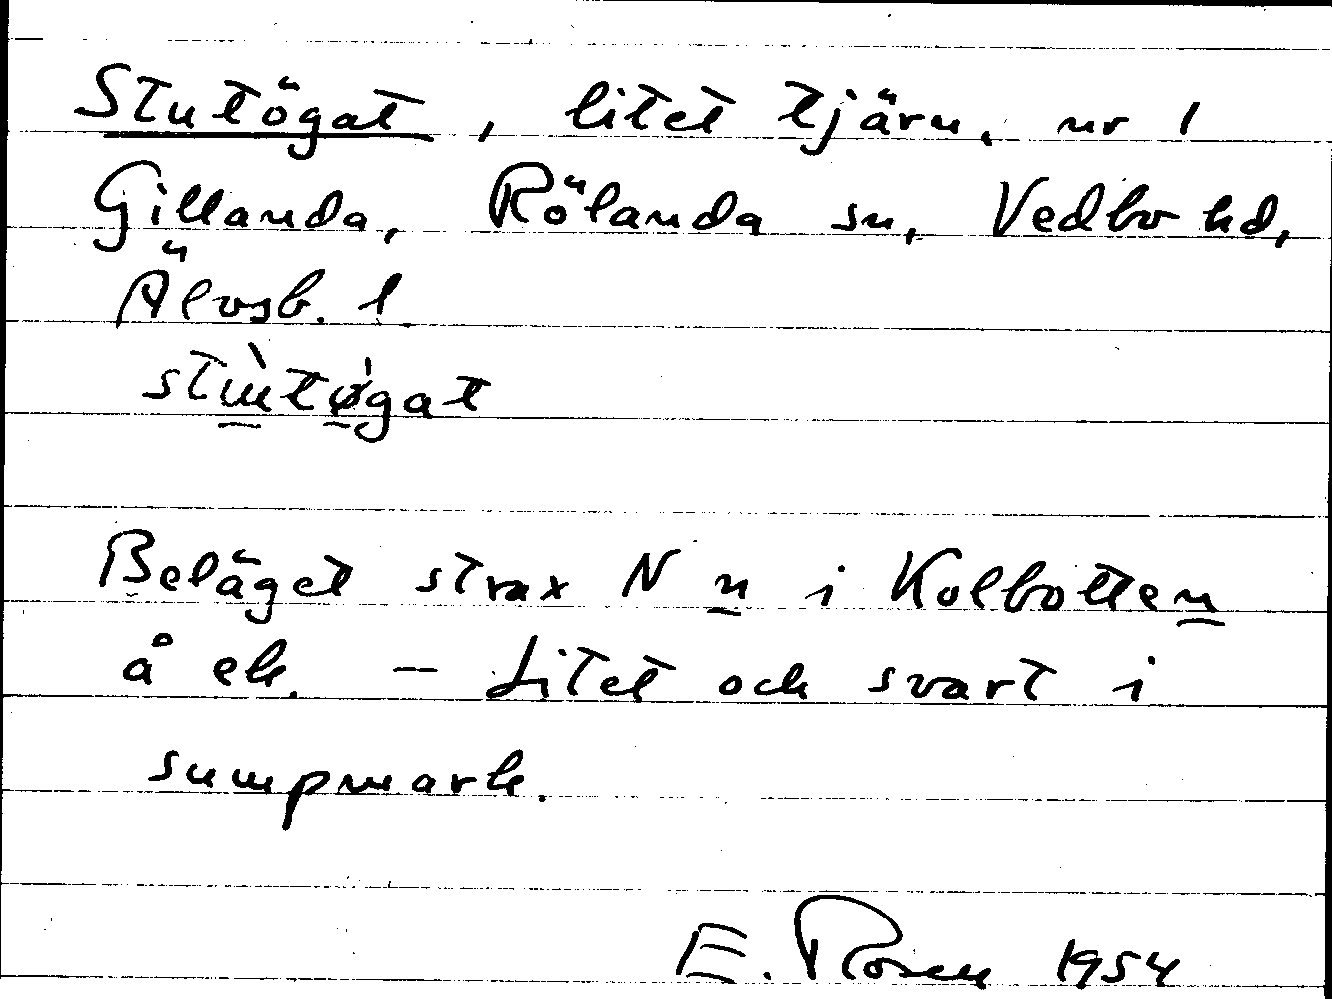 Stutögat, litet tjärn, nr 1
Gillanda, Rölanda sn, Vedbo hd,
Älvsb. l.
Beläget strax N n i Kolbotten
å ek. – Litet och svart i
sumpmark.
E. Rosen 1954